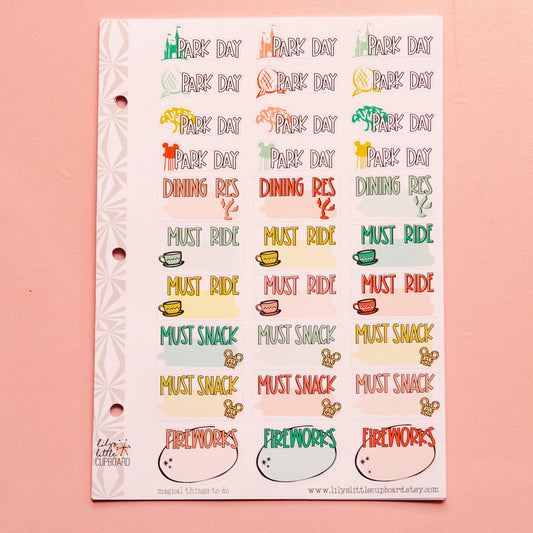 PARK DAY PARK DAY PARK DAY
PARK DAY PARK DAY PARK DAY
PARK DAY PARK DAY PARK DAY
PARK DAY PARK DAY PARK DAY
DINING RES DINING RES DINING RES
MUST RIDE MUST RIDE MUST RIDE
MUST RIDE MUST RIDE MUST RIDE
MUST SNACK MUST SNACK MUST SNACK
MUST SNACK MUST SNACK MUST SNACK
FIREWORKS FIREWORKS FIREWORKS
lily's
little
CUPBOARD
magical things to do
www.lilyslittlecupboard.etsy.com